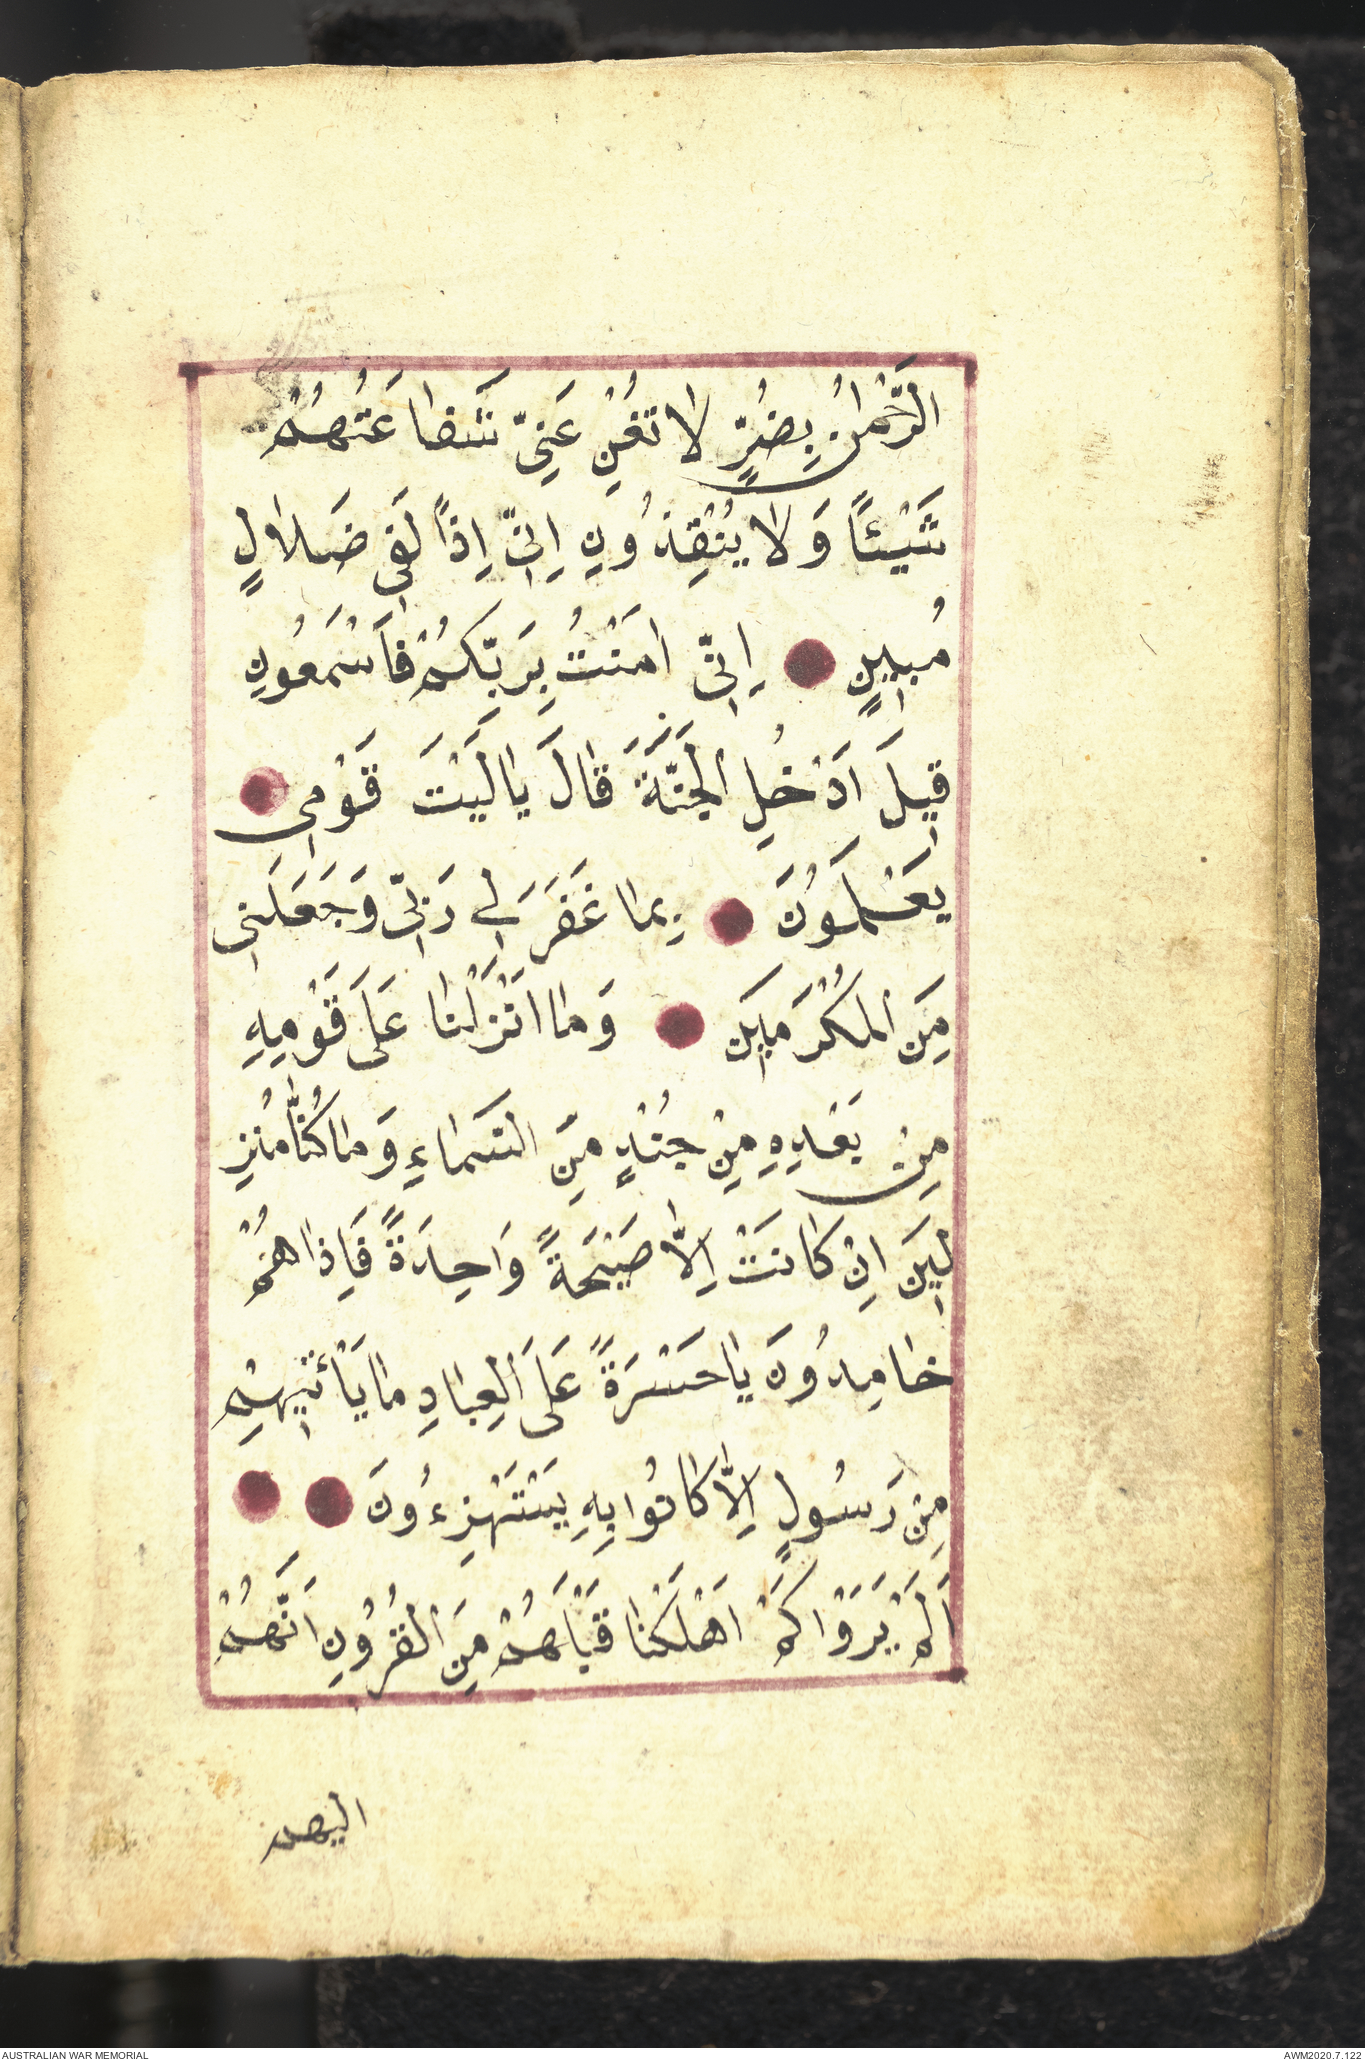 الرَّحْمٰنُ بِضُرٍّ لَا تُغْنِ عَنِّى شَفَاعَتُهُمْ
شَيْئًا وَلَا يُنْقِذُونِ اِنِّى اِذًا لَفِى ضَلَالٍ
مُبِينٍ اِنِّى اٰمَنْتُ بِرَبِّكُمْ فَاسْمَعُونِ
قِيلَ ادْخُلِ الْجَنَّةَ قَالَ يَالَيْتَ قَوْمِى
يَعْلَمُونَ بِمَا غَفَرَ لِى رَبِّى وَجَعَلَنِى
مِنَ الْمُكْرَمِينَ وَمَا اَنْزَلْنَا عَلَى قَوْمِهِ
مِنْ بَعْدِهِ مِنْ جُنْدٍ مِنَ السَّمَاءِ وَمَا كُنَّا مُنْزِ
لِينَ اِنْ كَانَتْ اِلَّا صَيْحَةً وَاحِدَةً فَاِذَا هُمْ
خَامِدُونَ يَاحَسْرَةً عَلَى الْعِبَادِ مَا يَأْتِيهِمْ
مِنْ رَسُولٍ اِلَّا كَانُوا بِهِ يَسْتَهْزِءُونَ
اَلَمْ يَرَوْا كَمْ اَهْلَكْنَا قَبْلَهُمْ مِنَ الْقُرُونِ اَنَّهُمْ
اليهم
AUSTRALIAN WAR MEMORIAL
AWM2020.7.122